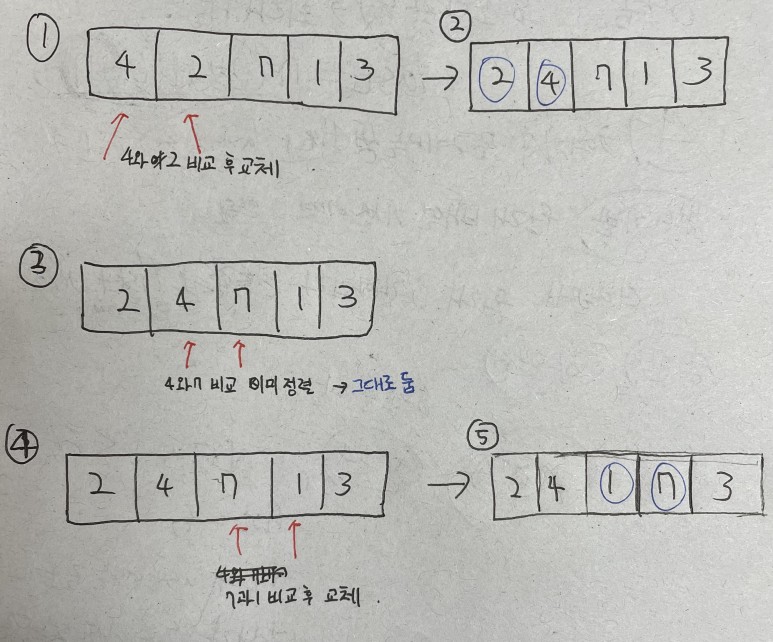 ① 4 2 7 1 3 → ② 2 4 7 1 3
4와 2 비교 후 교체
③ 2 4 7 1 3
4와 7 비교 이미 정렬 → 그대로 둠
④ 2 4 7 1 3 → ⑤ 2 4 1 7 3
7과 1 비교 후 교체.